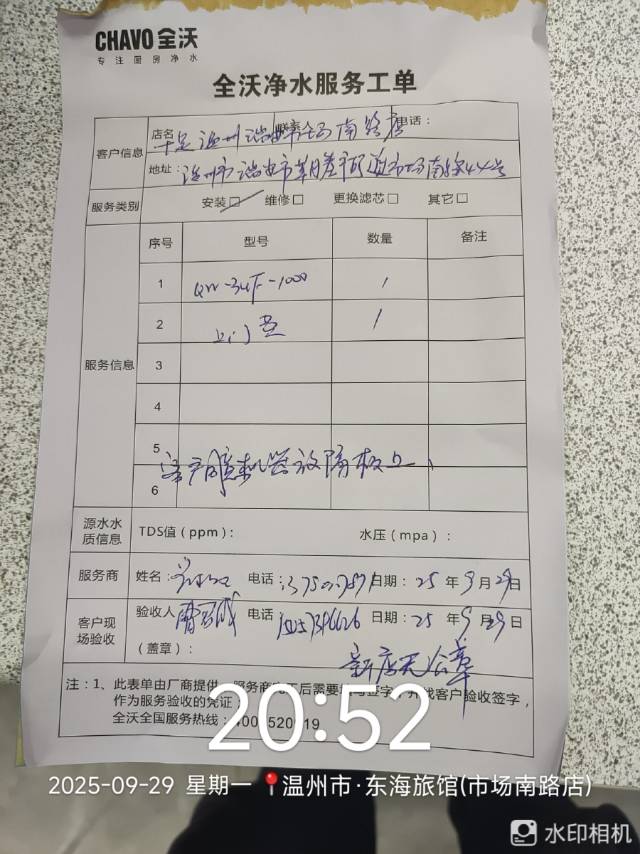 CHAVO 全沃
专注厨房净水
全沃净水服务工单
客户信息
店名 温州瑞安市场南路店 电话：
地址：温州市瑞安市莘塍街道市场南路44号
服务类别 安装□ 维修□ 更换滤芯□ 其它□
服务信息
序号 型号 数量 备注
1 QW-3UF-1000 1
2 上门费 1
3
4
5
客户要求机器放隔板上
6
源水水质信息 TDS值（ppm）： 水压（mpa）：
服务商 姓名： 电话： 日期：25 年 9 月 29 日
客户现场验收 验收人 电话 日期：25 年 9 月 29 日
（盖章）： 新店无公章
注：1、此表单由厂商提供，服务商完工后需要 签字，并找客户验收签字，
作为服务验收的凭证
全沃全国服务热线：
20:52
2025-09-29 星期一 温州市·东海旅馆(市场南路店)
水印相机